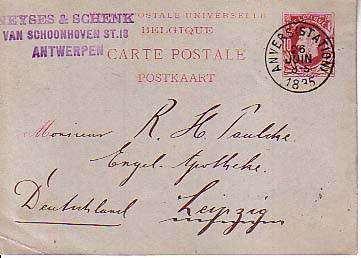 NEYSES & SCHENK
VAN SCHOONHOVEN ST. 18
ANTWERPEN
POSTALE UNIVERSELLE
BELGIQUE
CARTE POSTALE
POSTKAART
ANVERS (STATION)
6
JUIN
1885
Monsieur R. H. Paulcke
Engel-Apotheke.
Deutschland Leipzig